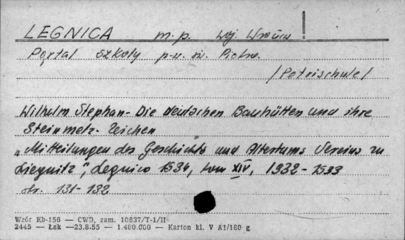 LEGNICA m.p. woj. Wrocław!
Portal szkoły p.w. św. Piotra.
/Petrischule/
Wilhelm Stephan - Die deutschen Bauhütten und ihre
Steinmetz-Zeichen
"Mitteilungen des Geschichts und Altertums Vereins zu
Liegnitz", Legnica 1934, tom XIV, 1932-1933
str. 131-132
Wzór Kb-158 — CWD, zam. 10837/T-1/II
2445 — Łsk —23.8.55 — 1.480.000 — Karton kl. V A1/180 g